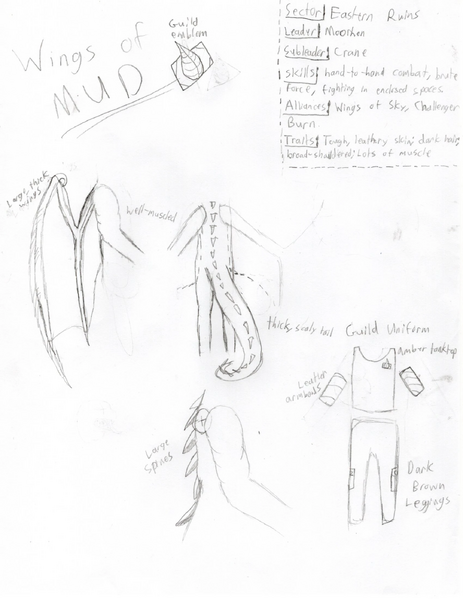 Wings of
MUD
Guild
emblem
Sector| Eastern Ruins
Leader| Moorhen
Subleader| Crane
Skills| hand-to-hand combat, brute
force, fighting in enclosed spaces
Allances| Wings of Sky, Challenger
Burn
Traits| Tough, leathery skin; dark hair;
broad-shouldered; Lots of muscle
Large, thick
wings
well-muscled
thick, scaly tail
Guild Uniform
Amber tanktop
Leather
armbands
Dark
Brown
Leggings
Large
Spines